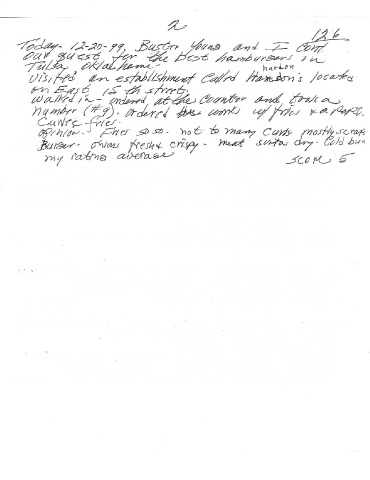 2
136
Today 12-20-99, Buster Young and I Cont
our quest for the best hamburgers in
Tulsa Oklahoma.
hardon
Visited an establishment Called Hamson's located
on East 15 th street.
Walked in - ordered at the counter and took a
number (#9). ordered the works w/ fries &
Curlee fries.
opinion - Fries so so. not to many Curls mostly scraps
Burger - onions fresh & crispy - meat sorta dry - Cold bun
my rating average SCOR 5